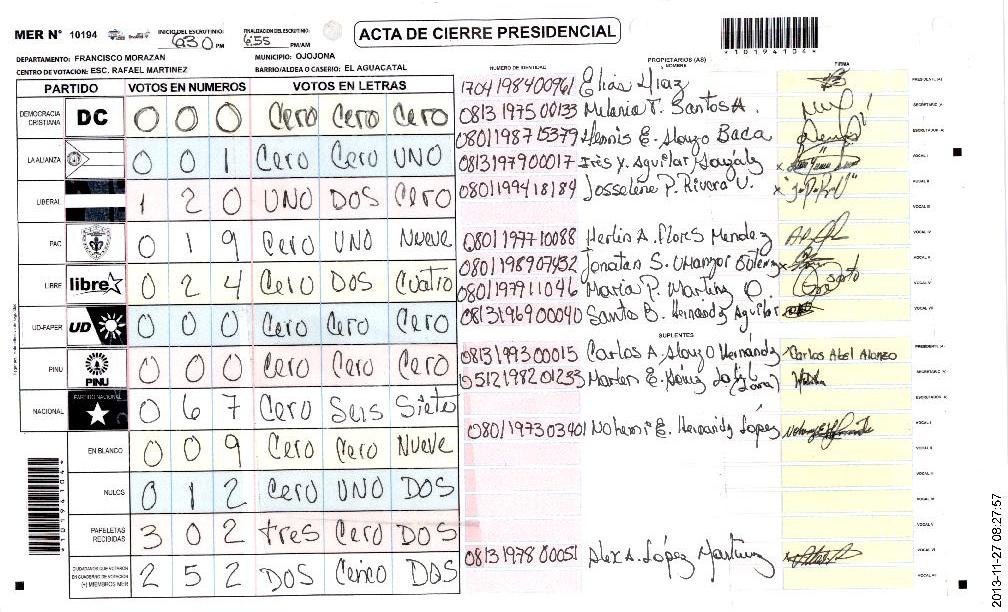 MER N° 10194 INICIO DEL ESCRUTINIO: 6:30 PM FINALIZACION DEL ESCRUTINIO: 6:55 PM/AM ACTA DE CIERRE PRESIDENCIAL *10194104*
DEPARTAMENTO: FRANCISCO MORAZAN MUNICIPIO: OJOJONA
CENTRO DE VOTACION: ESC. RAFAEL MARTINEZ BARRIO/ALDEA O CASERIO: EL AGUACATAL
PARTIDO VOTOS EN NUMEROS VOTOS EN LETRAS
DEMOCRACIA CRISTIANA DC 0 0 0 Cero Cero Cero
LA ALIANZA 0 0 1 Cero Cero UNO
LIBERAL 1 2 0 UNO DOS Cero
PAC 0 1 9 Cero UNO Nueve
LIBRE libre 0 2 4 Cero DOS Cuatro
UD-FAPER UD 0 0 0 Cero Cero Cero
PINU PINU 0 0 0 Cero Cero Cero
NACIONAL PARTIDO NACIONAL 0 6 7 Cero Seis Siete
EN BLANCO 0 0 9 Cero Cero Nueve
NULOS 0 1 2 Cero UNO DOS
PAPELETAS RECIBIDAS 3 0 2 tres Cero DOS
CIUDADANOS QUE VOTARON EN CUADERNO DE VOTACION (+) MIEMBROS MER 2 5 2 DOS Cinco DOS
PROPIETARIOS (AS)
NUMERO DE IDENTIDAD NOMBRE FIRMA
1704198400961 Elias Diaz PRESIDENTE (A)
0813197500133 Melania T. Santos A. SECRETARIO (A)
0801198715379 Hennis E. Alonzo Baca ESCRUTADOR (A)
0813197900017 Iris Y. Aguilar VOCAL I
0801199418184 Josselene P. Rivera V. VOCAL II
VOCAL III
0801197710088 Herlin A. Flores Mendez VOCAL IV
0801198907432 Jonatan S. Umanzor VOCAL V
0801197911046 Maria P. Martinez O VOCAL VI
0813196900040 Santo B. Hernandez Aguilar VOCAL VII
SUPLENTES
0813199300015 Carlos A. Alonzo Hernandz Carlos Abel Alonzo PRESIDENTE (A)
0512198201233 Marlen E. SECRETARIO (A)
ESCRUTADOR (A)
0801197303401 Nohemi E. Hernandz López VOCAL I
VOCAL II
VOCAL III
VOCAL IV
VOCAL V
0813197800051 Alex A. López Martinez VOCAL VI
VOCAL VII
*10194104*
2013-11-27 08:27:57